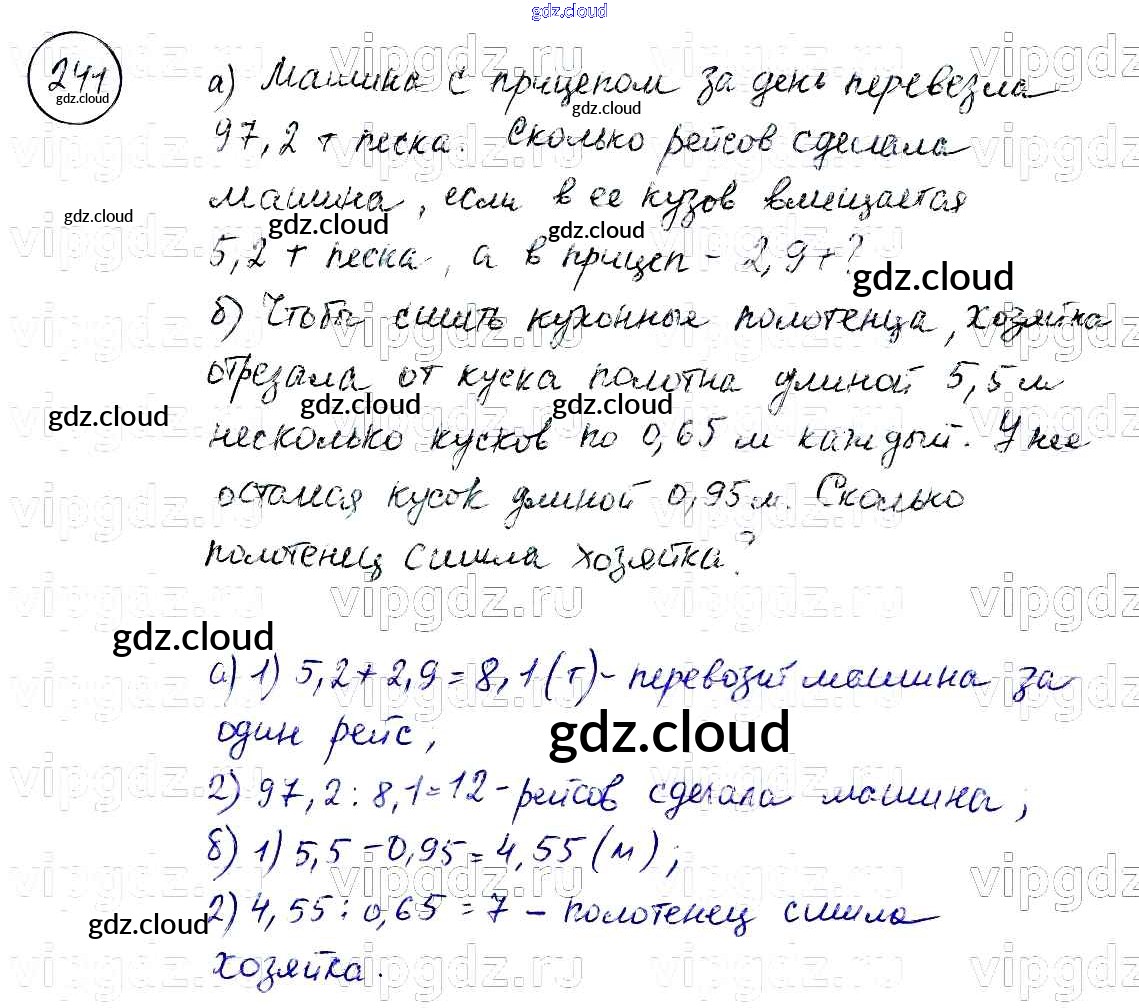 gdz.cloud
241
gdz.cloud
а) Машина с прицепом за день перевезла
gdz.cloud
97,2 т песка. Сколько рейсов сделала
машина, если в ее кузов вмещается
gdz.cloud
gdz.cloud
gdz.cloud
5,2 т песка, а в прицеп - 2,9 т?
gdz.cloud
б) Чтобы сшить кухонные полотенца, хозяйка
отрезала от куска полотна длиной 5,5 м
gdz.cloud
gdz.cloud
gdz.cloud
несколько кусков по 0,65 м каждый. У нее
остался кусок длиной 0,95 м. Сколько
полотенец сшила хозяйка?
vipgdz.ru
gdz.cloud
а) 1) 5,2 + 2,9 = 8,1 (т) - перевозит машина за
один рейс;
gdz.cloud
2) 97,2 : 8,1 = 12 - рейсов сделала машина;
б) 1) 5,5 - 0,95 = 4,55 (м);
2) 4,55 : 0,65 = 7 - полотенец сшила
gdz.cloud
хозяйка.